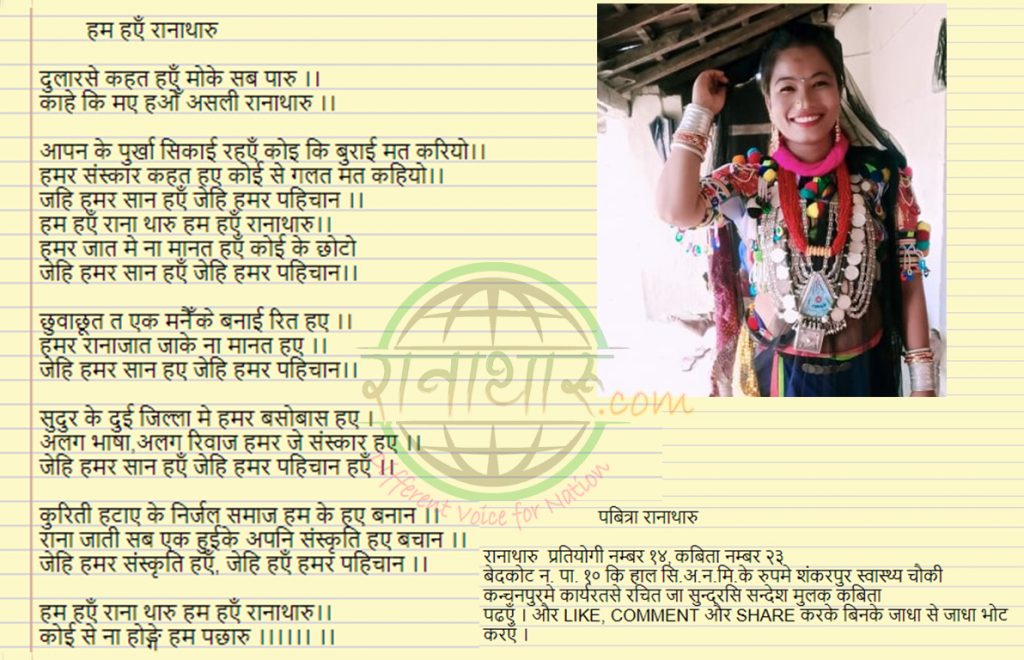 हम हएँ रानाथारु
दुलारसे कहत हएँ मोके सब पारु ।।
काहे कि मए हओँ असली रानाथारु ।।
आपन के पुर्खा सिकाई रहएँ कोइ कि बुराई मत करियो।।
हमर संस्कार कहत हए कोई से गलत मत कहियो।।
जहि हमर सान हएँ जेहि हमर पहिचान ।।
हम हएँ राना थारु हम हएँ रानाथारु।।
हमर जात मे ना मानत हएँ कोई के छोटो
जेहि हमर सान हएँ जेहि हमर पहिचान।।
छुवाछूत त एक मनैँके बनाई रित हए ।।
हमर रानाजात जाके ना मानत हए ।।
जेहि हमर सान हए जेहि हमर पहिचान।।
सुदुर के दुई जिल्ला मे हमर बसोबास हए ।
अलग भाषा,अलग रिवाज हमर जे संस्कार हए ।।
जेहि हमर सान हएँ जेहि हमर पहिचान हएँ ।।
कुरिती हटाए के निर्जल समाज हम के हए बनान ।।
राना जाती सब एक हुईके अपनि संस्कृति हए बचान ।।
जेहि हमर संस्कृति हएँ, जेहि हएँ हमर पहिचान ।।
हम हएँ राना थारु हम हएँ रानाथारु।।
कोई से ना होङ्गे हम पछारु ।।।।।। ।।
रानाथारु.com
Different Voice for Nation
पबित्रा रानाथारु
रानाथारु प्रतियोगी नम्बर १४, कबिता नम्बर २३
बेदकोट न. पा. १० कि हाल सि.अ.न.मि.के रुपमे शंकरपुर स्वास्थ्य चौकी
कन्चनपुरमे कार्यरतसे रचित जा सुन्दरसि सन्देश मुलक कबिता
पढएँ । और LIKE, COMMENT और SHARE करके बिनके जाधा से जाधा भोट
करएँ ।